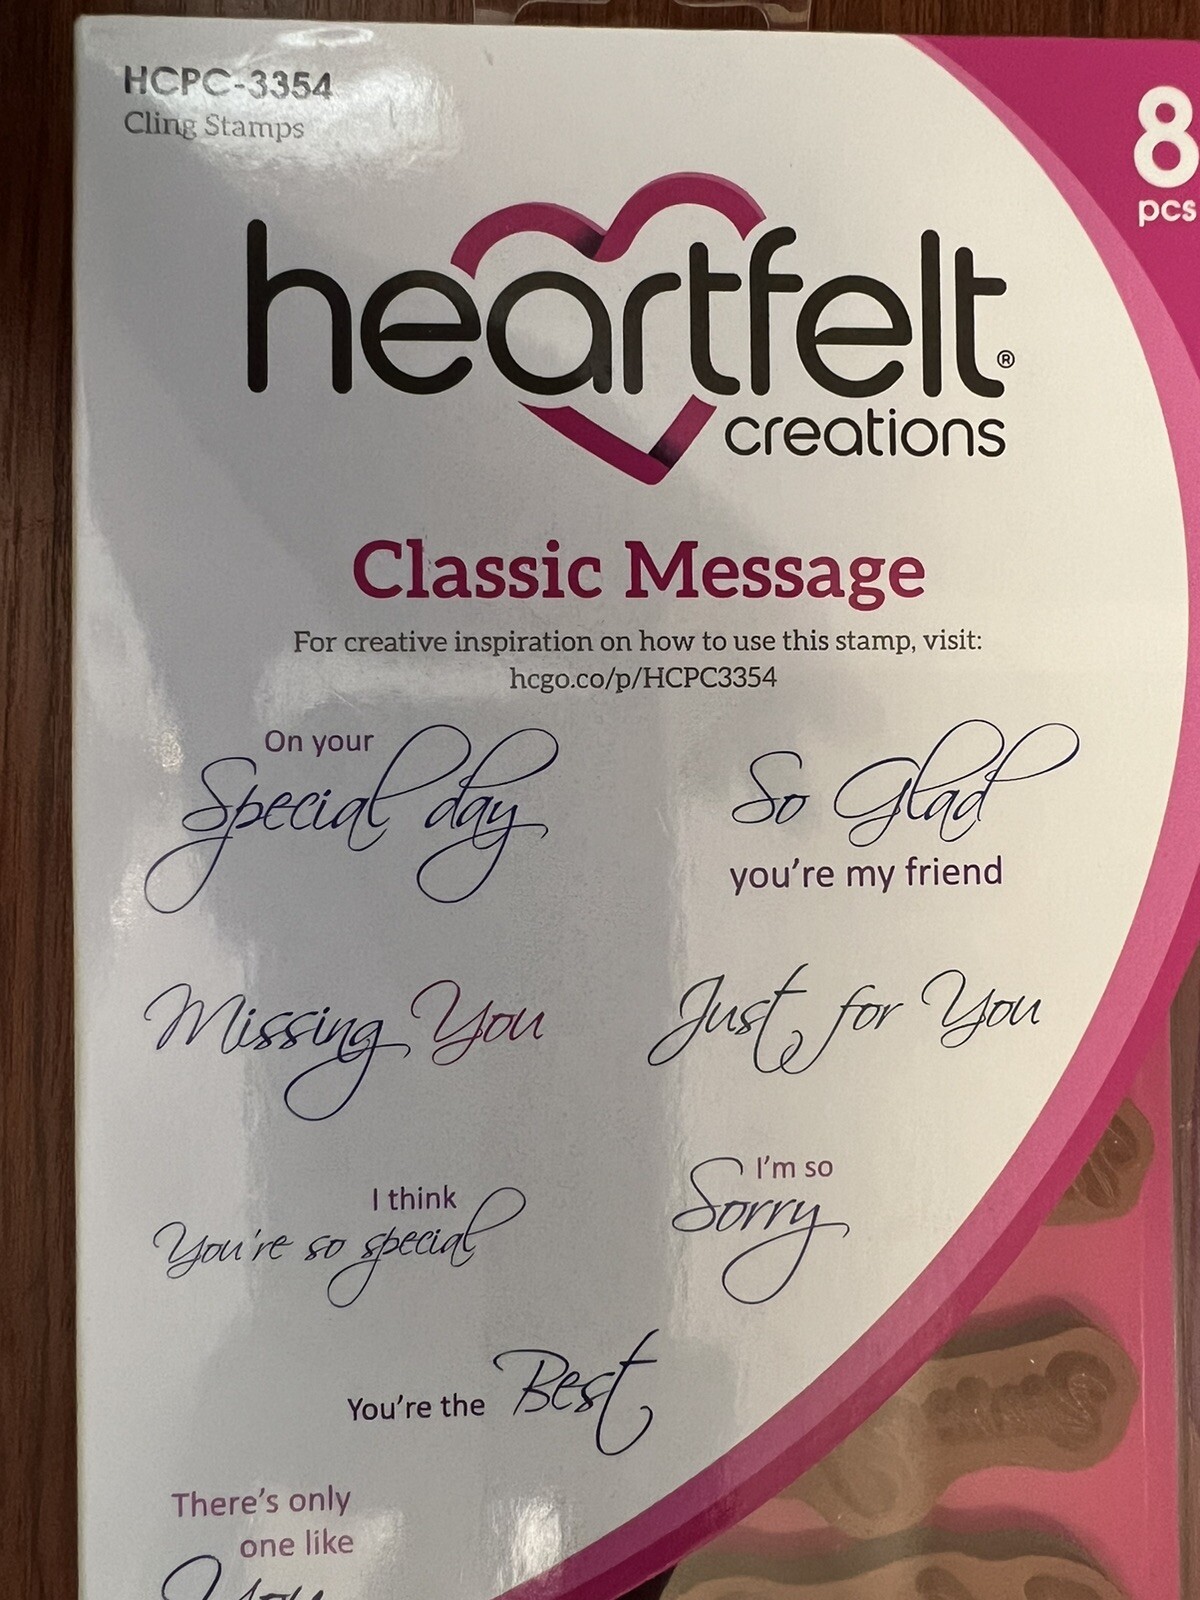 HCPC-3354
Cling Stamps
8
pcs
heartfelt®
creations
Classic Message
For creative inspiration on how to use this stamp, visit:
hcgo.co/p/HCPC3354
On your
Special day
So Glad
you're my friend
Missing You
Just for You
I think
You're so special
I'm so
Sorry
You're the Best
There's only
one like
You